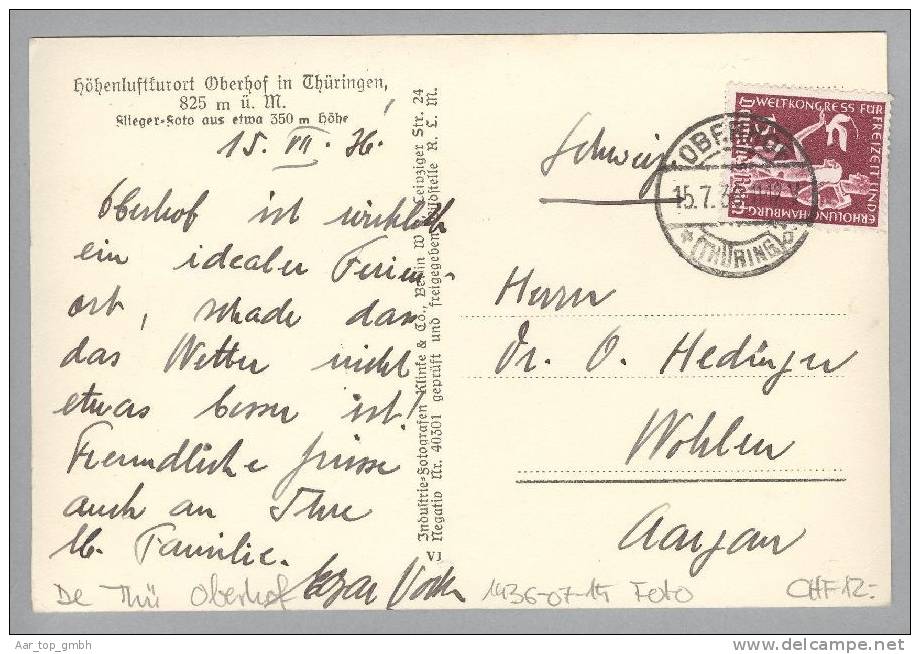 Höhenluftkurort Oberhof in Thüringen,
825 m ü. M.
Flieger-Foto aus etwa 350 m Höhe
15. VII. 36.
Oberhof ist wirklich
ein idealer Ferien-
ort, schade dass
das Wetter nicht
etwas besser ist!
Freundliche Grüsse
auch an Ihre
lb. Familie.
Industrie-Fotografen Klinke & Co., Berlin W 8, Leipziger Str. 24
Negativ Nr. 40301 geprüft und freigegeben Bildstelle R. L. M.
VI
Schweiz
WELTKONGRESS FÜR
FREIZEIT UND
ERHOLUNG HAMBURG
Deutsches Reich
OBERHOF
15.7.36
(THÜRING)
Herrn
Dr. O. Hedinger
Wohlen
Aargau
De Thü Oberhof
1936-07-15 Foto
CHF 12.-
Aar_top_gmbh
delcampe.net